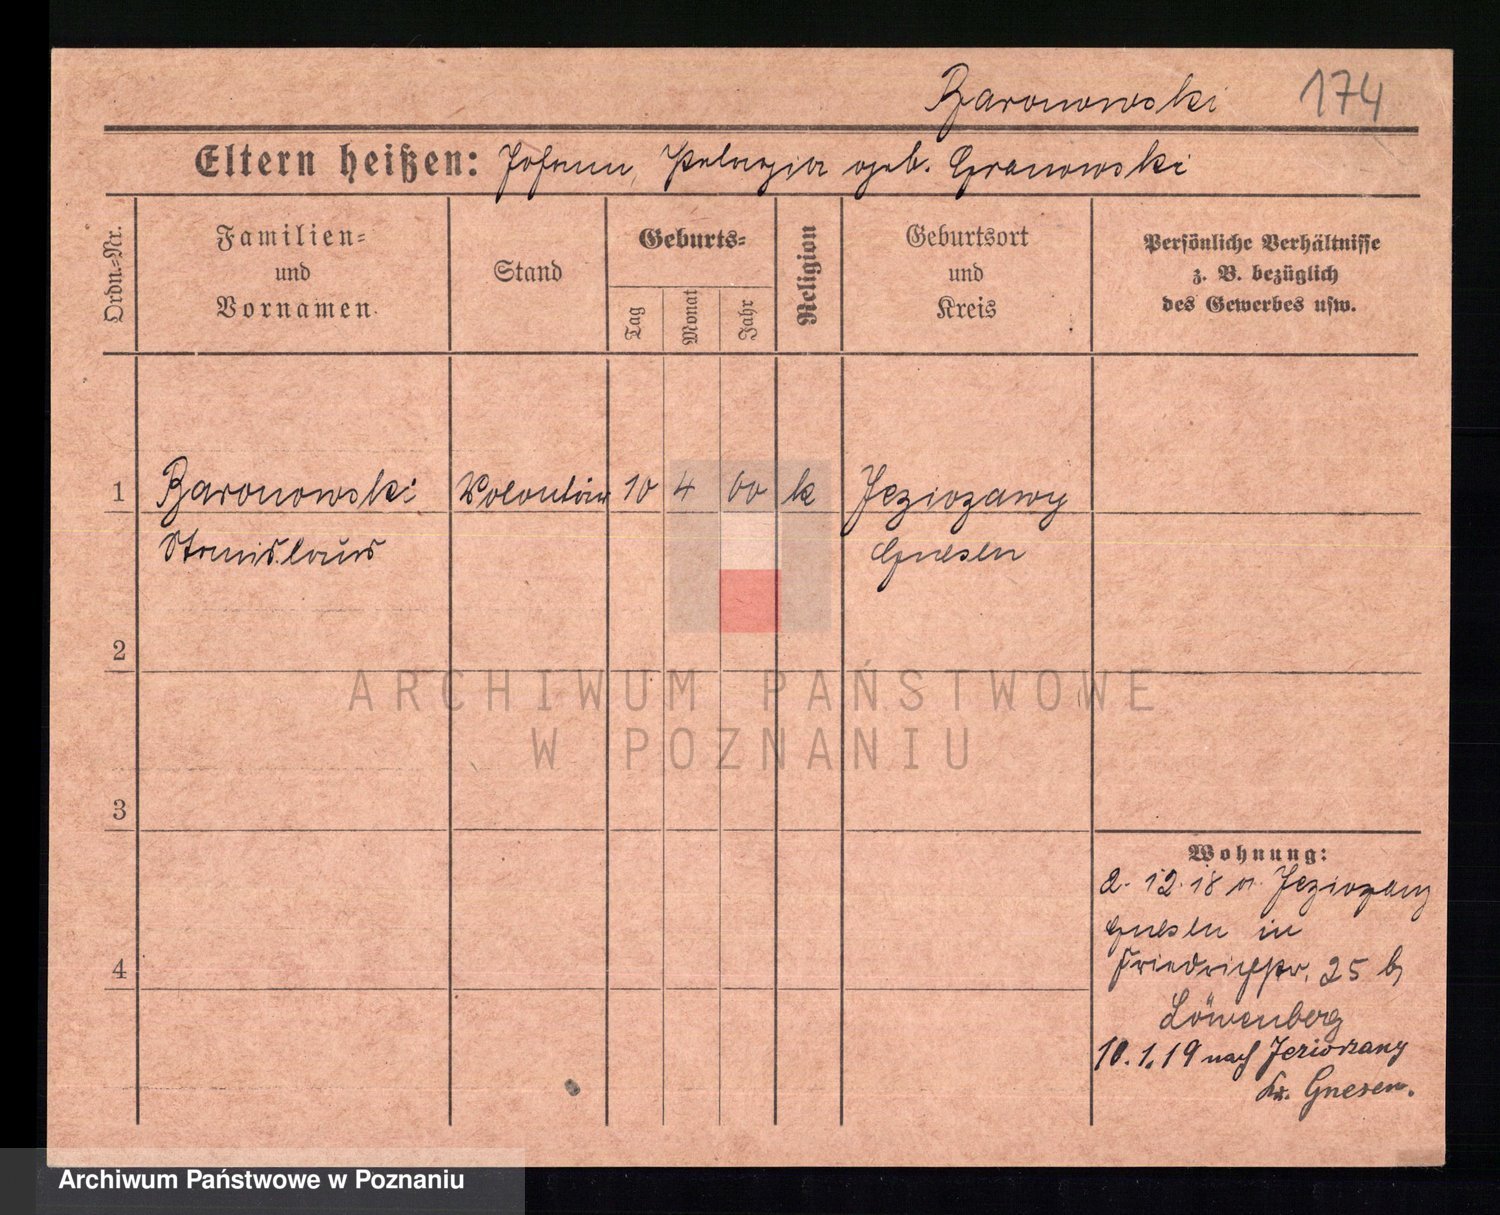 Baronowski 174
Eltern heißen: Johann, Pelagia geb. Granowski
Ordn.-Nr.
Familien-
und
Vornamen.
Stand
Geburts-
Tag
Monat
Jahr
Religion
Geburtsort
und
Kreis
Persönliche Verhältnisse
z. B. bezüglich
des Gewerbes usw.
1 Baronowski Volontär 10 4 00 k Jeziozany
Stanislaus Gnesen
2
3
4
Wohnung:
2. 12. 18 v. Jeziozany
Gnesen in
Friedrichstr. 25 b,
Löwenberg
10.1.19 nach Jeziorzany
Kr. Gnesen.
ARCHIWUM PAŃSTWOWE
W POZNANIU
Archiwum Państwowe w Poznaniu